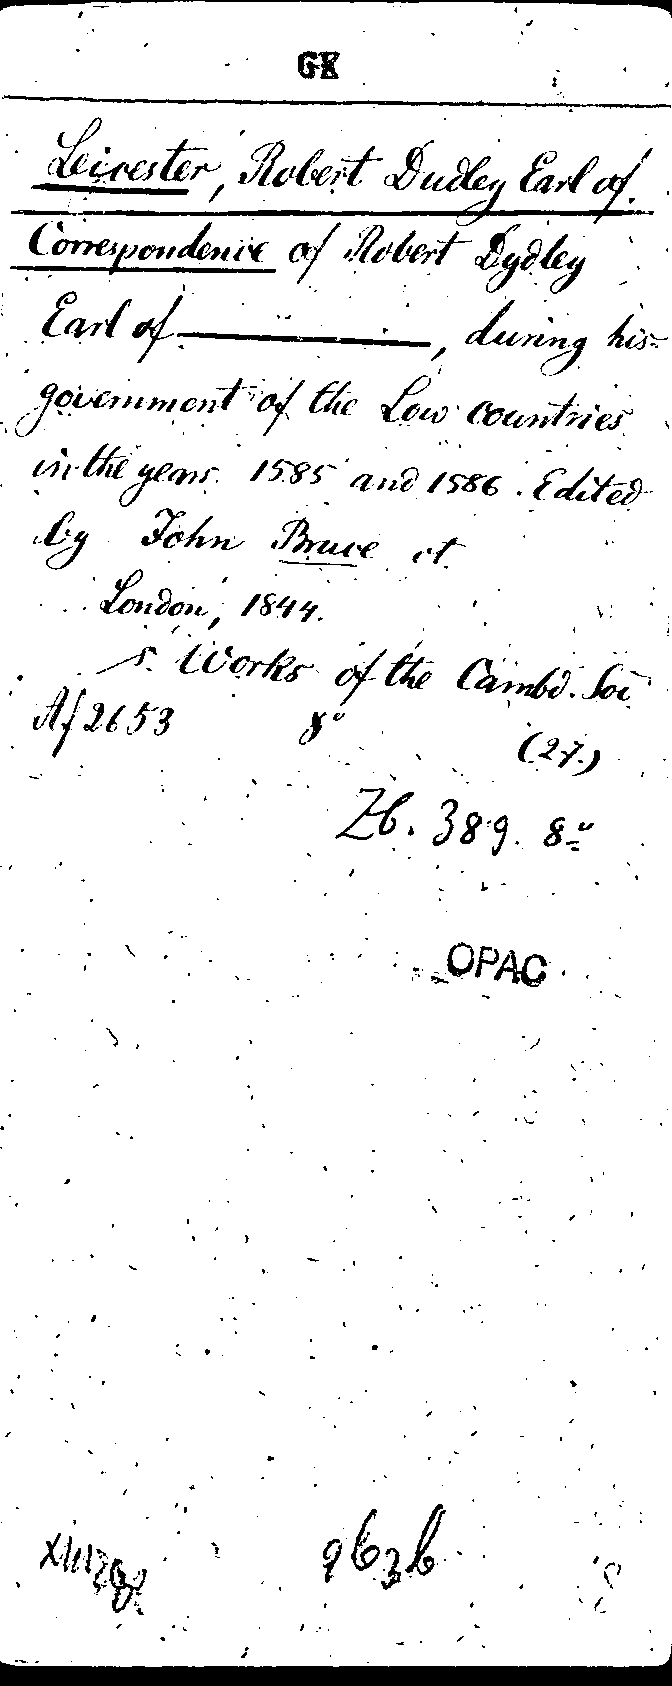 GK
Leicester, Robert Dudley Earl of.
Correspondence of Robert Dydley
Earl of ————, during his
government of the Low countries
in the years 1585 and 1586. Edited
by John Bruce
London, 1844.
s. Works of the Cambd. Soc
Af 2653 8°
(27.)
Zb. 389. 8°
OPAC